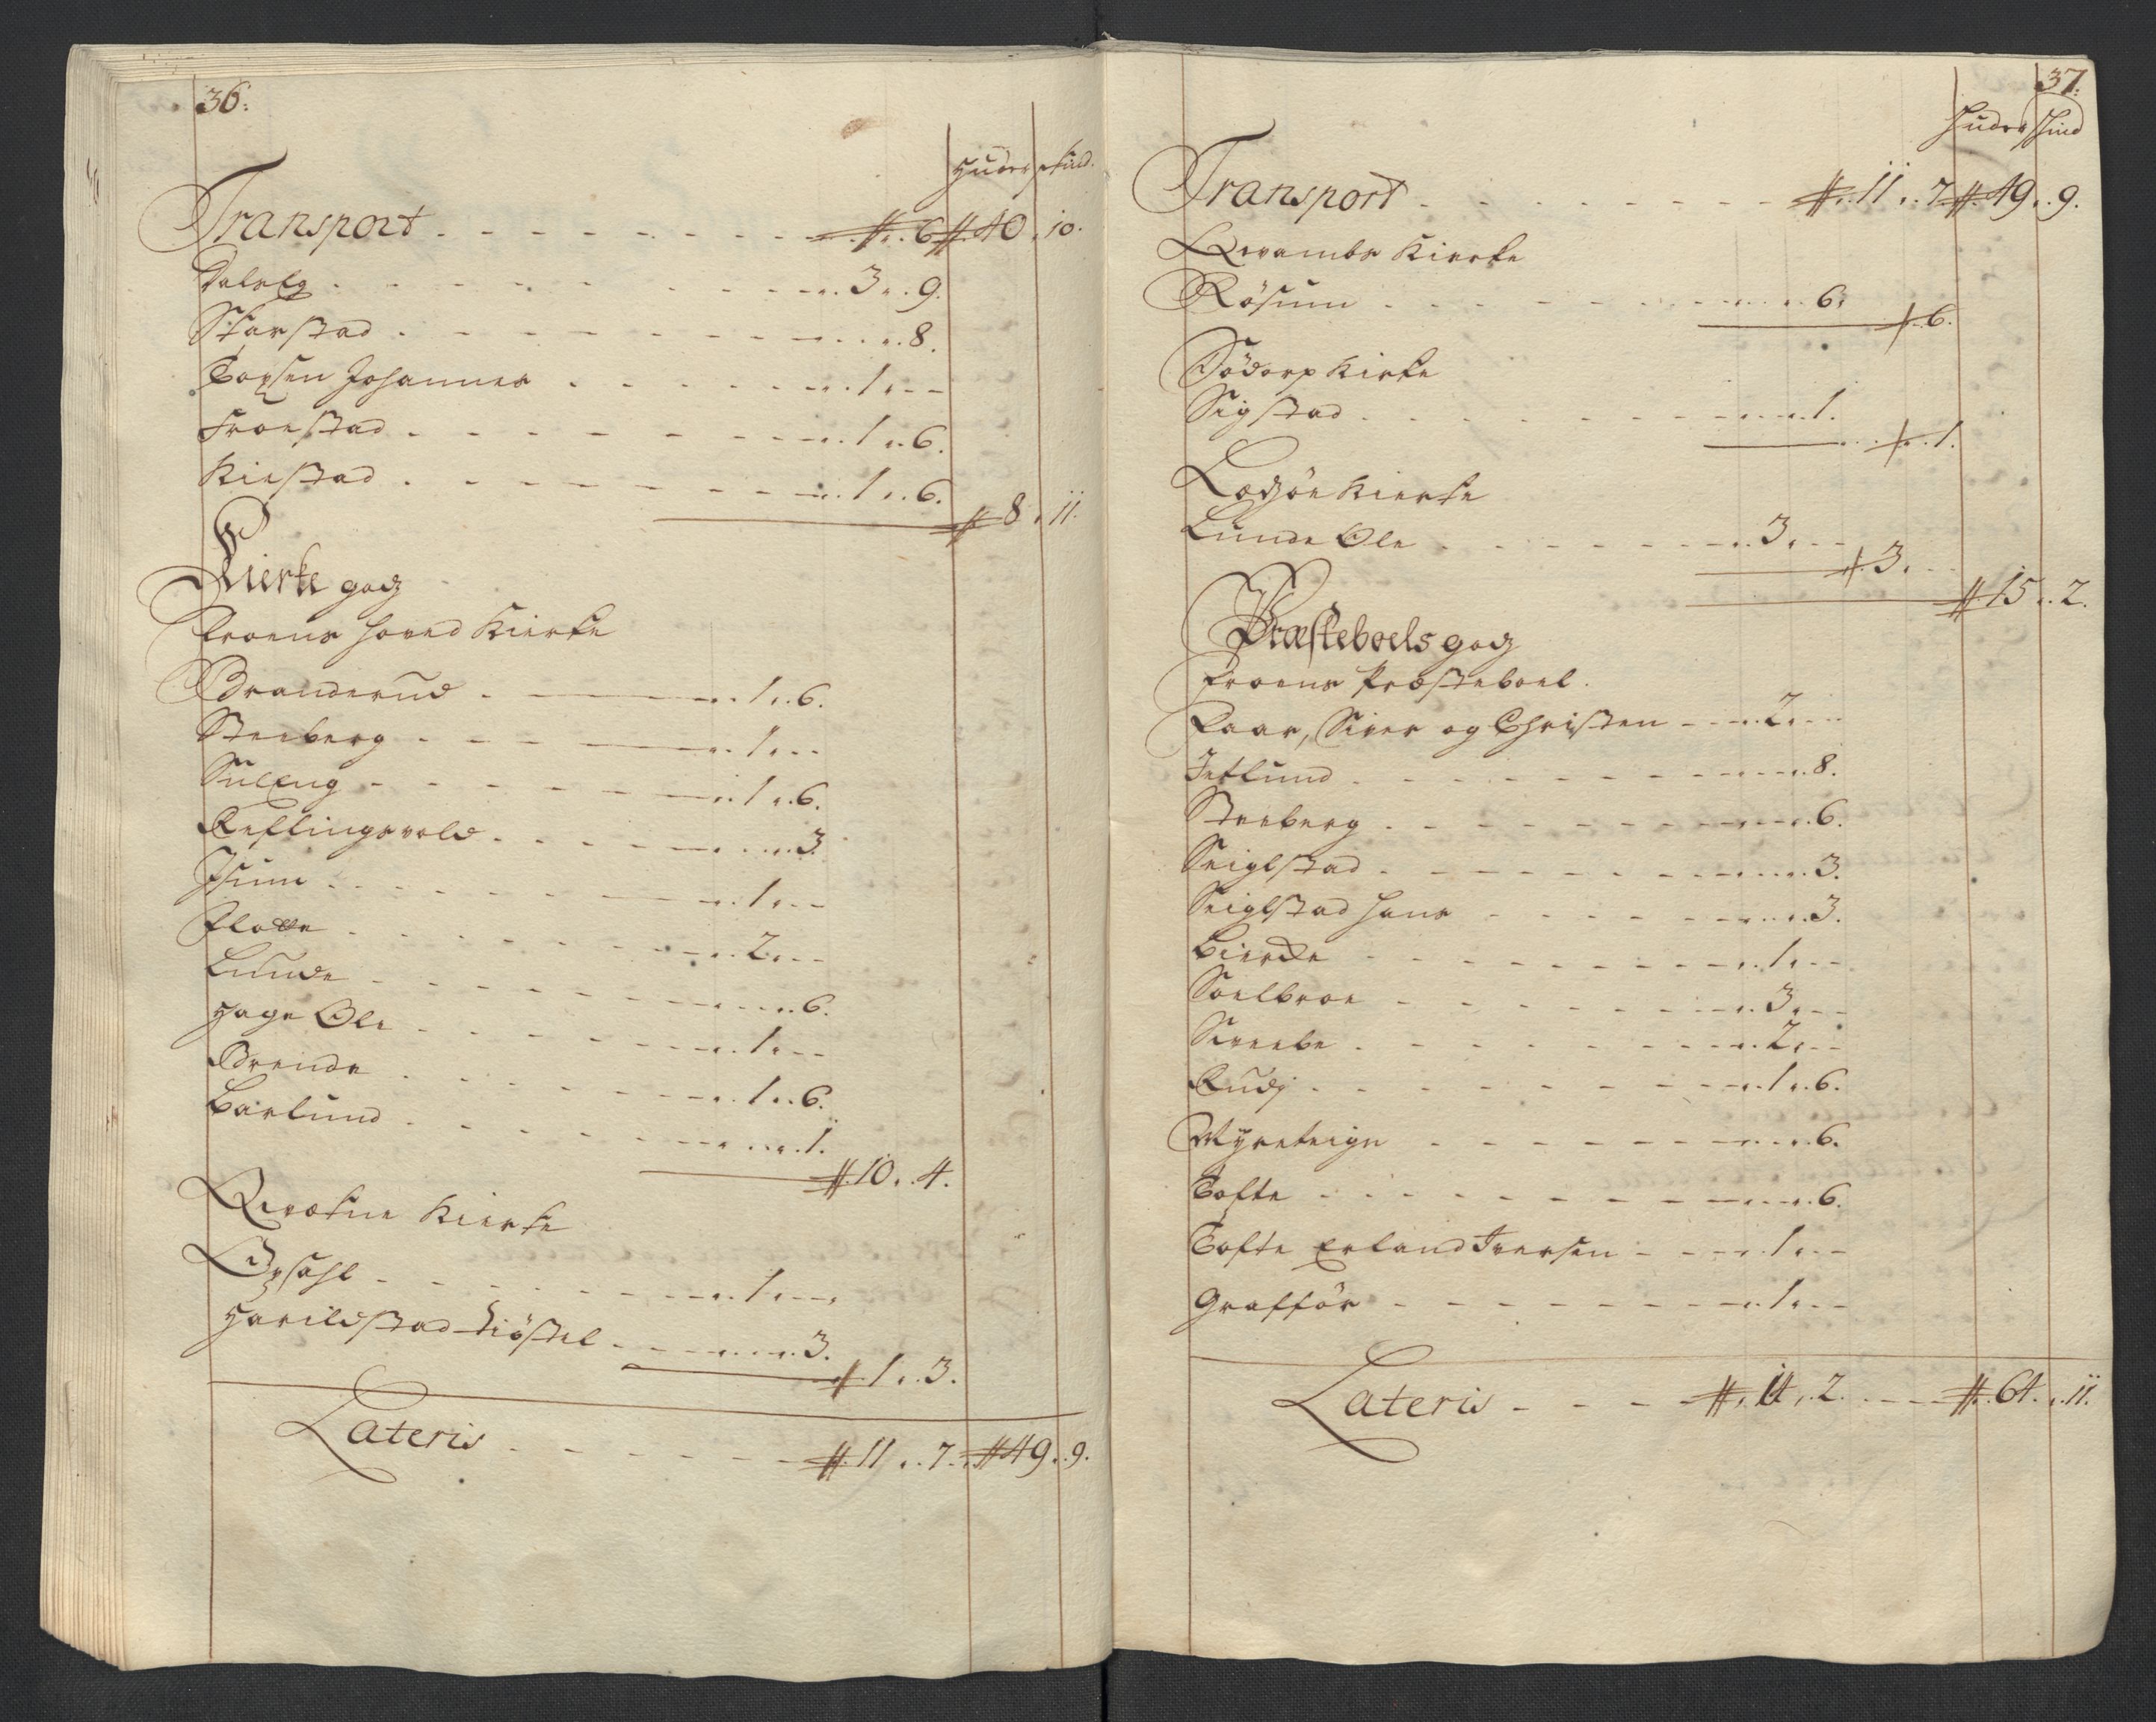 36.
Huder skind.
Transport . . . # . . 6 # 40 . 10.
Dalseg . . . 3 . . 9.
Skarstad . . . 8.
Toxsen Johannes . . . 1 . . -
Fronstad . . . 1 . . 6.
Kirstad . . . 1 . . 6.
# 8 . 11.
Kierke godz
Froens Hoved Kierke
Branderud . . . 1 . . 6.
Steeberg . . . 1 . . -
Suleng . . . 1 . . 6.
Reflingsvold . . . 3.
Isum . . . 1 . . -
Flatte . . . 2 . . -
Lunde . . . 6.
Hage Ole . . . 1 . . -
Brende . . . 1 . . 6.
Barlund . . . 1.
# 10 . . 4.
Qvickne Kierke
Opsahl . . . 1 . . -
Harildstad Kiøstel . . . 3.
# 1 . . 3.
Lateris . . . # 11 . . 7 . # 49 . . 9.
37.
Huder skind
Transport . . . # 11 . . 7 # 49 . . 9.
Qvambs Kierke
Røsum . . . 6.
# . 6.
Sødorp Kirke
Sigstad . . . 1.
# . . 1.
Lodzøe Kierke
Lunde Ole . . . 3 . . -
# 3 . . -
# 15 . . 2.
Præsteboels godz
Froens Præsteboel.
Faar, Siver og Christen . . . 2 . . -
Jetlund . . . 8.
Steeberg . . . 6.
Seiglstad . . . 3.
Seiglstad Hans . . . 3.
Bierche . . . 1 . . -
Soelbroe . . . 3 . . -
Sireebe . . . 2 . . -
Rudj . . . 1 . . 6.
Myreteign . . . 6.
Tofte . . . 6.
Tofte Erland Iversen . . . 1 . . -
Graffør . . . 1 . . -
Lateris . . . # 14 . . 2 . . . # 64 . . 11.